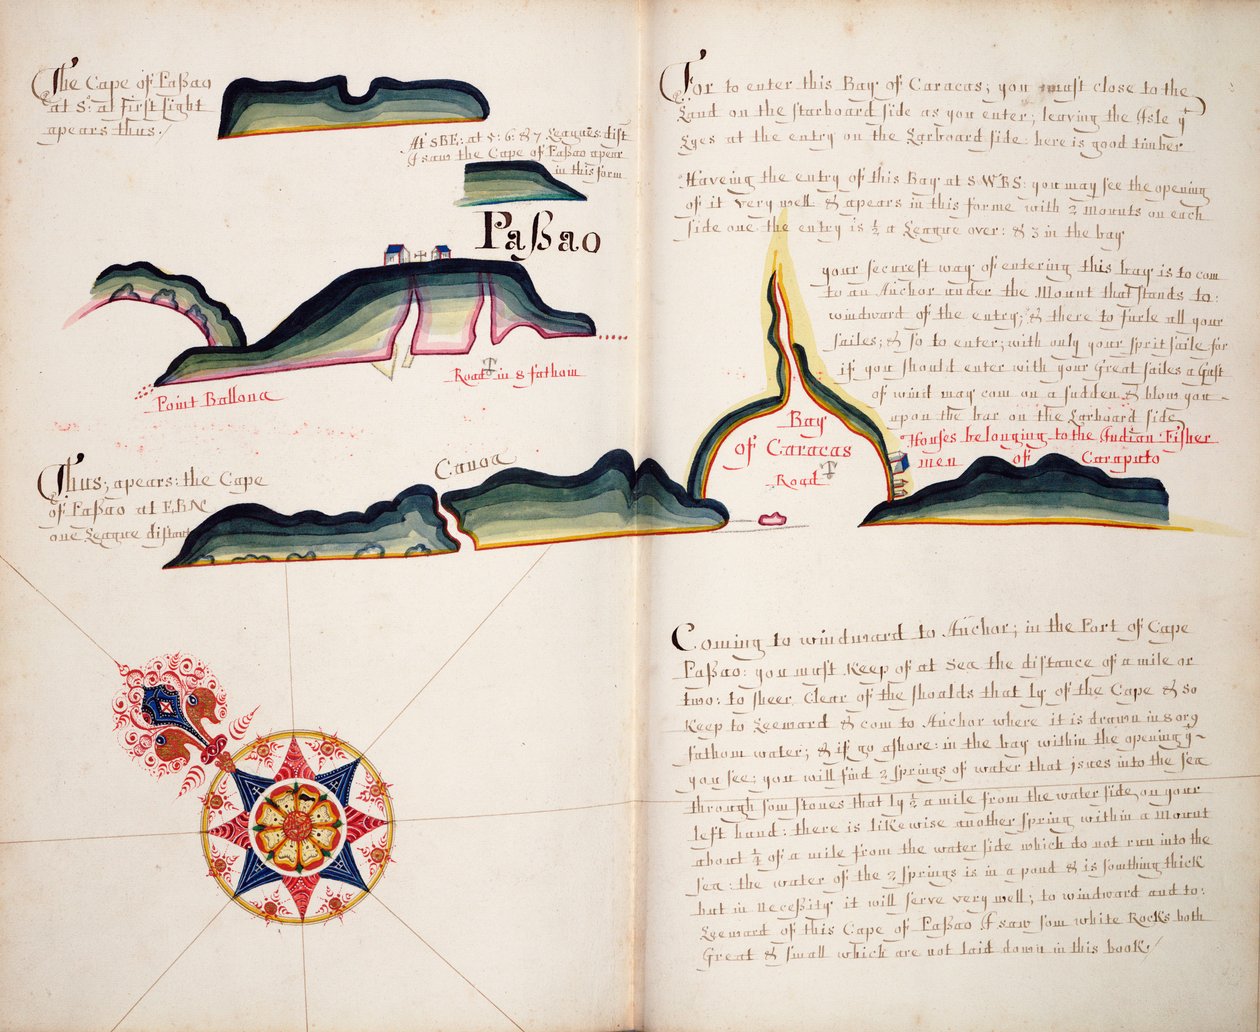 The Cape of Paßao
at S: at First sight
apears thus:/
At SBE: at 5: 6: & 7 Leagues: dist
I saw the Cape of Paßao apear
in this form
Paßao
Point Ballona
Road in 8 fathom
Thus; apears: the Cape
of Paßao at EBN
one League distant
Canoa
For to enter this Bay of Caracas; you must close to the
Land on the starboard side as you enter; leaving the Isle yt
Lyes at the entry on the Larboard side: here is good timber
Haveing the entry of this Bay at SWBS: you may see the opening
of it very well & apears in this forme with 2 Mounts on each
side one: the entry is ½ a League over: & 3 in the bay
your securest way of entering this bay is to com
to an Anchor under the Mount that stands to:
windward of the entry; & there to furle all your
sailes; & so to enter; with only your spritsaile for
if you should enter with your Great sailes a Gust
of wind may com on a sudden & blow you
upon the bar on the Larboard side
Bay
of Caracas
Road
Houses belonging to the Indian Fisher
men of Caraputo
Coming to windward to Anchor; in the Port of Cape
Paßao: you must Keep of at Sea the distance of a mile or
two: to sheer Clear of the shoalds that ly of the Cape & so
Keep to Leeward & com to Anchor where it is drawn in 8 or 9
fathom water; & if go ashore: in the bay within the opening yt
you see; you will find 2 springs of water that isues into the sea
through som stones that ly ½ a mile from the water side, on your
left hand: there is likewise another spring within a Mount
about ¼ of a mile from the water side which do not run into the
sea: the water of the 2 springs is in a pond & is somthing thick
but in necessity it will serve very well; to windward and to:
Leeward of this Cape of Paßao I saw som white Rocks both
Great & small which are not laid down in this book/